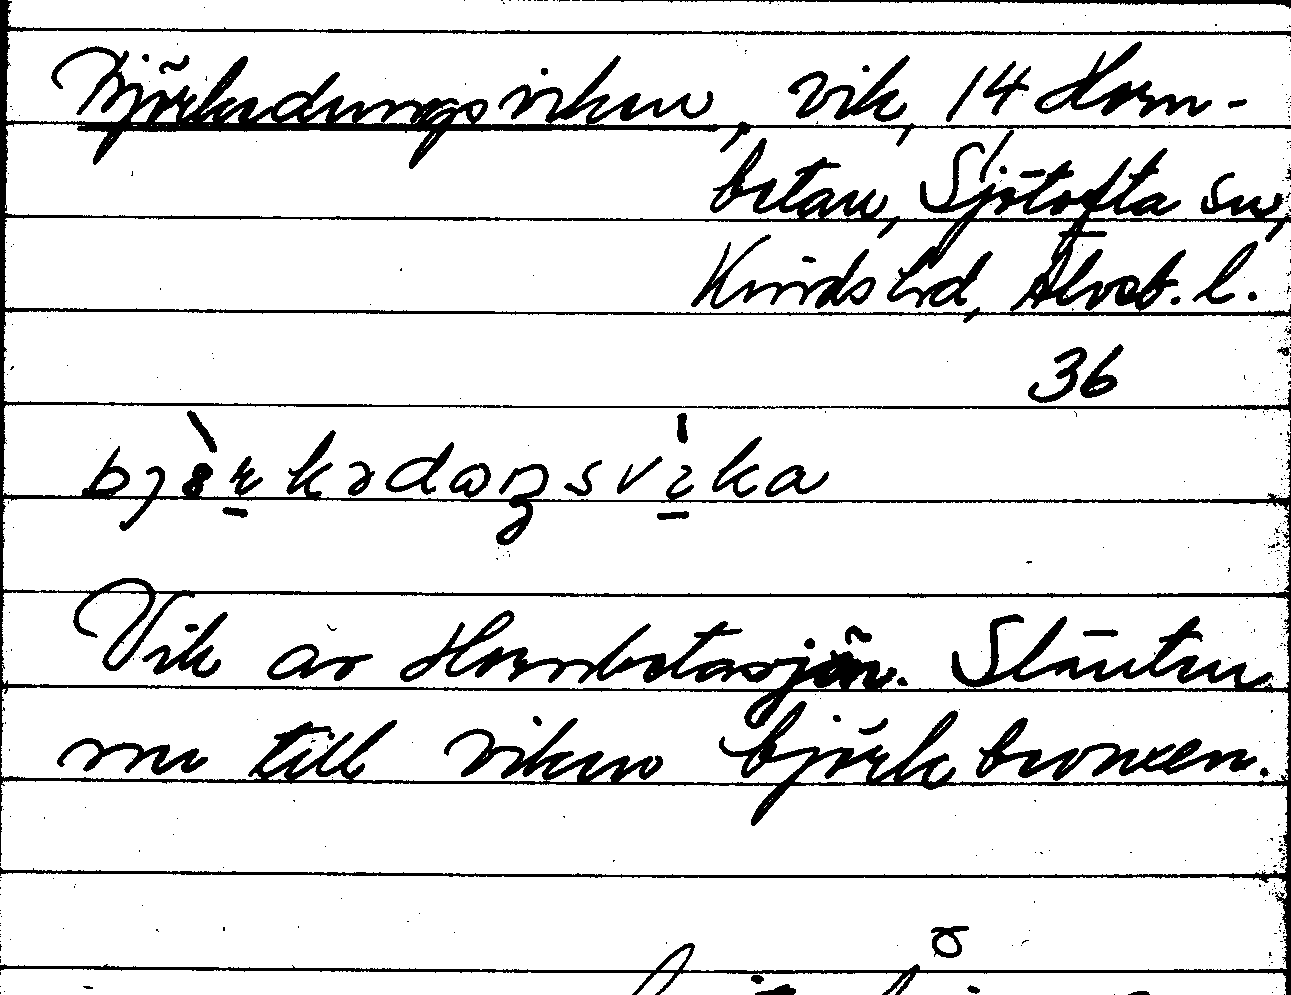 Björkedungsviken, vik, 14 Horn-
betan, Sjötofta sn,
Kinds hd, Älvsb. l.
36
bjö̀rkədaŋsvíka
Vik av Hornbetasjön. Sluttn
ner till viken björkbevuxen.